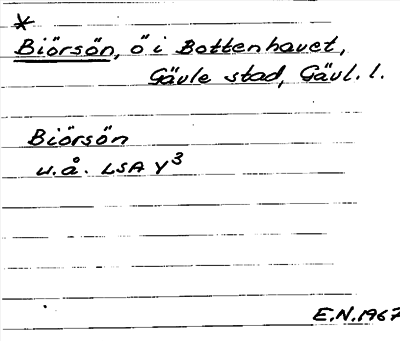 *
Biörsön, ö i Bottenhavet,
Gävle stad, Gävl. l.
Biörsön
u.å. LSA Y3
E.N. 1967